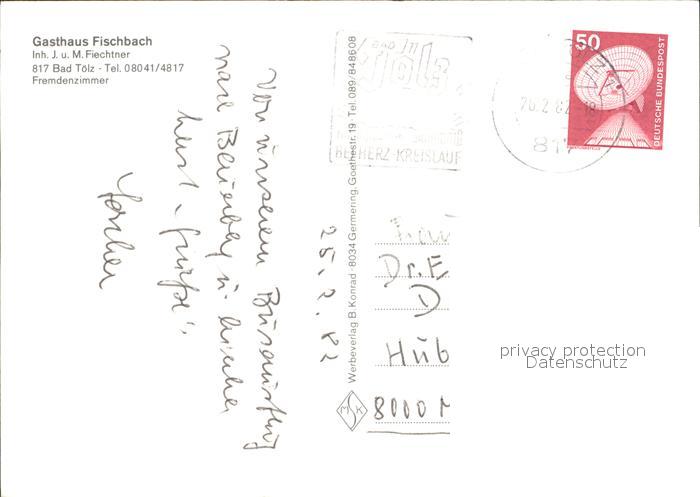 Gasthaus Fischbach
Inh. J. u. M. Fiechtner
817 Bad Tölz - Tel. 08041/4817
Fremdenzimmer
Werbeverlag B. Konrad · 8034 Germering, Goethestr. 19 · Tel. 089/848608
MSK
BAD
Tölz
BEI HERZ-KREISLAUF
26.2.82-18
817
50
DEUTSCHE BUNDESPOST
25.2.82
Von unserem Busausflug
nach
herzl. Grüße"
Frau
Dr. E
D
Hub
8000 M
privacy protection
Datenschutz